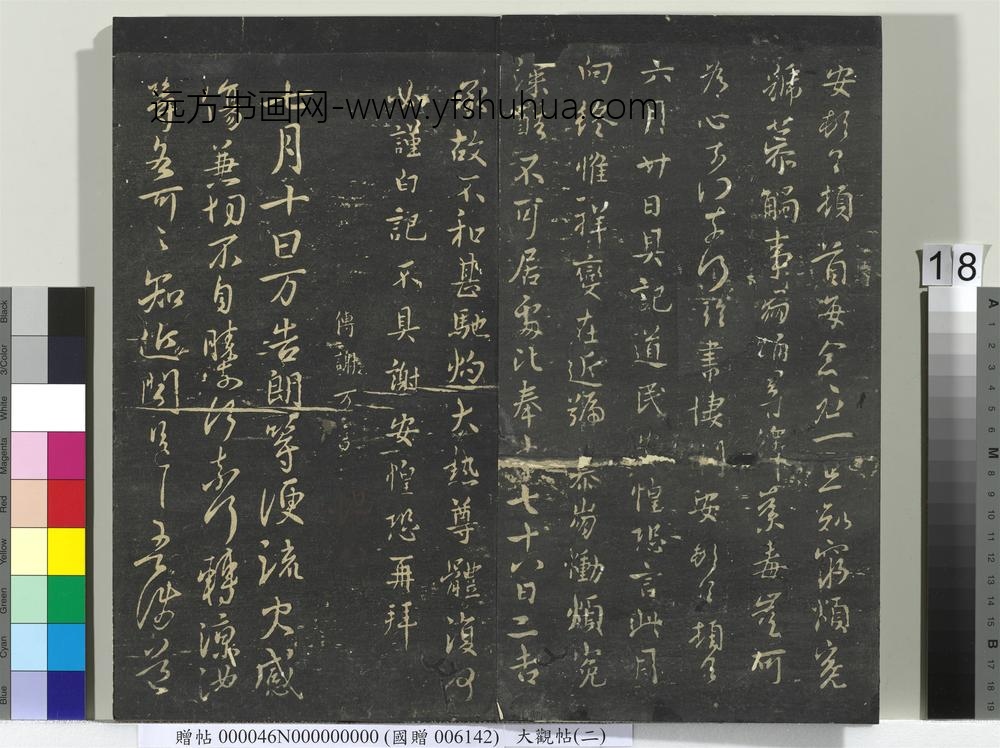 安頓首頓首每念君一旦知窮煩冤
號慕觸事崩踴尋繹荼毒豈可
為心奈何奈何臨書悽悶安頓首頓首
六月廿日具記道民安惶恐言此月
向終惟祥變在近號慕崩慟煩冤
深酷不可居處比奉十七十八日二告
承故不和甚馳灼大熱尊體復何
如謹白記不具謝安惶恐再拜
傳謝万書
七月十日万告朗等便流火感
傷兼切不自勝奈何奈何轉涼汝
等各可可知近聞邑邑吾涉道
远方书画网-www.yfshuhua.com
18
贈帖 000046N000000000 (國贈 006142) 大觀帖(二)
Black
3/Color
White
Magenta
Red
Yellow
Green
Cyan
Blue
A
1
2
3
4
5
6
M
8
9
10
11
12
13
14
15
B
17
18
19